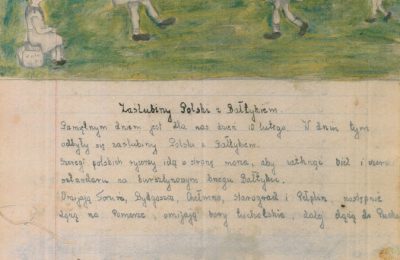 Zaślubiny Polski z Bałtykiem.
Pamiętnym dniem jest dla nas dzień 10 lutego. W dniu tym
odbyły się zaślubiny Polski z Bałtykiem.
Szeregi polskich rycerzy idą w stronę morza, aby wetknąć
sztandaru na bursztynowym brzegu Bałtyku.
Toruń, Bydgoszcz, Chełmno, Starogard i Pelplin, następnie
dążą na Pomorze, omijają bory tucholskie, dalej dążą do Pucka